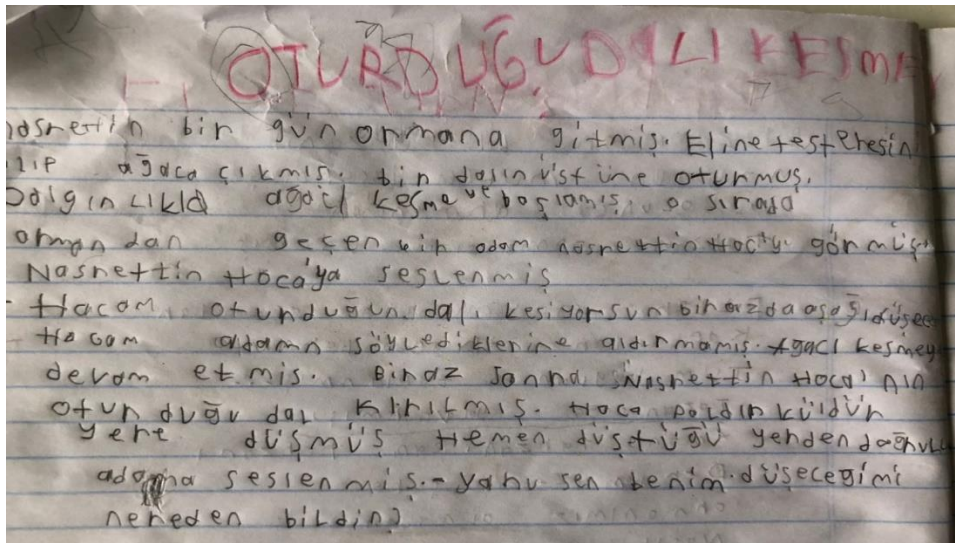 OTURDUĞU DALI KESME
nasrettin bir gün ormana gitmiş. Eline testeresin
alıp ağaca çıkmış. bir dalın üstüne oturmuş.
Dalgınlıkla ağacı kesmeye başlamış, o sırada
orman dan geçen bir adam nasrettin Hoca'yı görmüş.
Nasrettin Hoca'ya seslenmiş
- Hacam oturduğun dalı kesiyorsun birazda aşağıdüşec
Hocam adamın söylediklerine aldırmamış. Ağacı kesmey
devam etmiş. Biraz Sonra Nasrettin Hoca'nın
oturduğu dal kırılmış. Hoca paldır küldür
yere düşmüş Hemen düştüğü yerden doğrulu
adama seslenmiş. - yahu sen benim düşecegimi
nereden bildin?